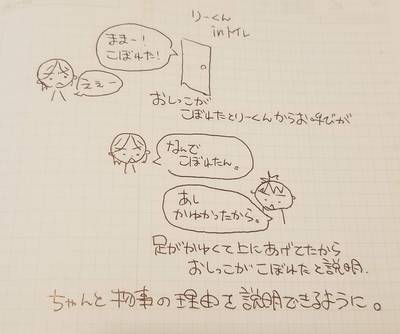 りーくん
inトイレ
ままー！
こぼれた！
えぇー
おしっこが
こぼれたとりーくんからお呼びが
なんで
こぼれたん。
あし
かゆかったから。
足がかゆくて上にあげてたから
おしっこがこぼれたと説明.
ちゃんと物事の理由を説明できるように。